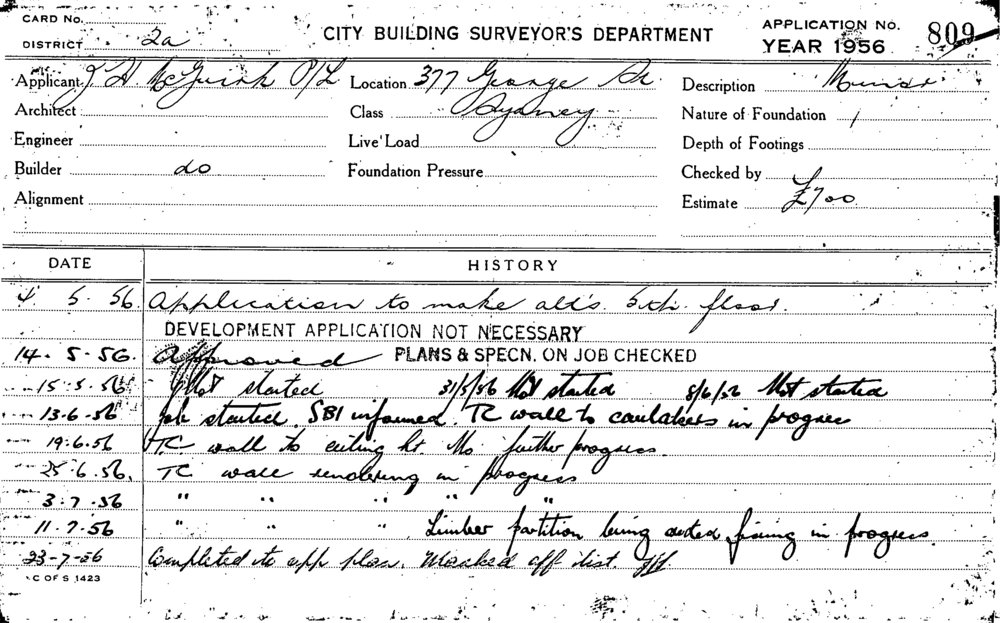 CARD No.
DISTRICT 2a
CITY BUILDING SURVEYOR'S DEPARTMENT
APPLICATION No. 809
YEAR 1956
Applicant J A McGuirk P/L Location 377 George St. Description Minor
Architect Class Sydney Nature of Foundation
Engineer Live Load Depth of Footings
Builder do Foundation Pressure Checked by
Alignment Estimate £700
DATE HISTORY
4. 5. 56. Application to make alts. 5th. floor.
DEVELOPMENT APPLICATION NOT NECESSARY
14. 5. 56. Approved PLANS & SPECN. ON JOB CHECKED
15. 5. 56 Not started 31/5/56 Not started 8/6/56 Not started
13. 6. 56 Job started. SBI informed. TC wall to caretakers in progress
19. 6. 56 TC wall to ceiling ht. No further progress.
25. 6. 56. TC wall rendering in progress
3. 7. 56 " " " " "
11. 7. 56 " " " Timber partition being erected, fixing in progress.
23-7-56 Completed to app plan. Marked off list.
C OF S 1423